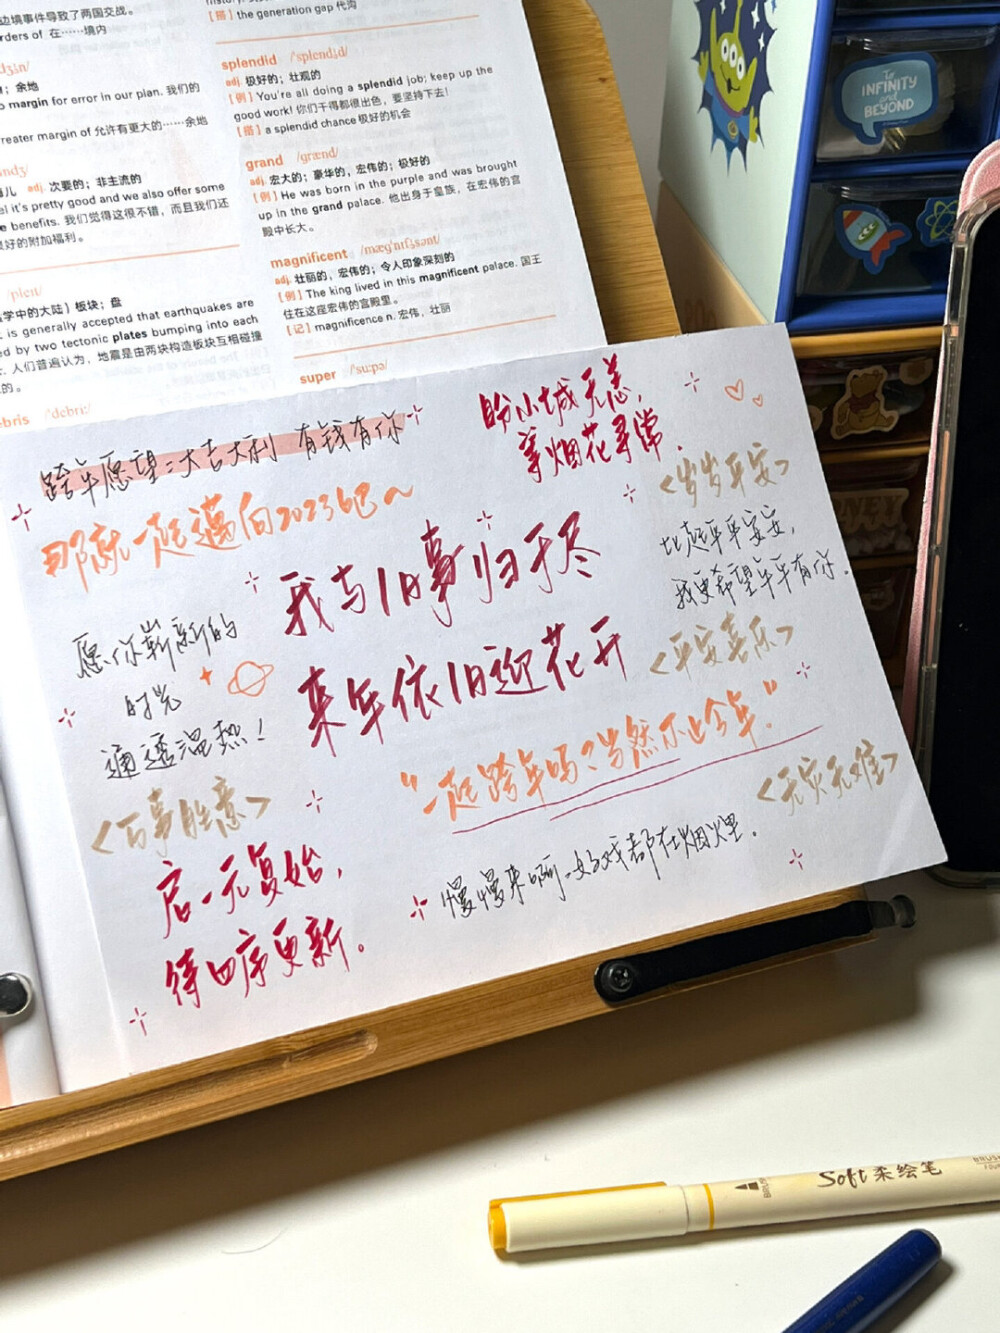 边境事件导致了两国交战。
rders of 在……境内
；余地
margin for error in our plan. 我们的
reater margin of 允许有更大的……余地
adj. 次要的；非主流的
el it's pretty good and we also offer some
e benefits. 我们觉得这很不错，而且我们还
良好的附加福利。
/pleɪt/
学中的大陆］板块；盘
t is generally accepted that earthquakes are
ed by two tectonic plates bumping into each
. 人们普遍认为，地震是由两块构造板块互相碰撞
的。
ebris /ˈdebriː/
［搭］the generation gap 代沟
splendid /ˈsplendɪd/
adj. 极好的；壮观的
［例］You're all doing a splendid job; keep up the
good work! 你们干得都很出色，要坚持下去！
［搭］a splendid chance 极好的机会
grand /ɡrænd/
adj. 宏大的；豪华的，宏伟的；极好的
［例］He was born in the purple and was brought
up in the grand palace. 他出身于皇族，在宏伟的宫
殿中长大。
magnificent /mæɡˈnɪfɪsənt/
adj. 壮丽的，宏伟的；令人印象深刻的
［例］The king lived in this magnificent palace. 国王
住在这座宏伟的宫殿里。
［记］magnificence n. 宏伟，壮丽
super /ˈsuːpə/
TO
INFINITY
and
BEYOND
跨年愿望：大吉大利 有钱有你
盼小城无恙，
等烟花寻常.
那就一起迈向2023吧～
<岁岁平安>
比起平平安安，
我更希望年年有你.
我与旧事归于尽
来年依旧迎花开
愿你崭新的
时光
通透温热！
<平安喜乐>
“一起跨年吗？当然不止今年.”
<百事胜意>
<无灾无难>
启一元复始，
待四序更新。
慢慢来啊一好戏都在烟火里.
Soft 柔绘笔